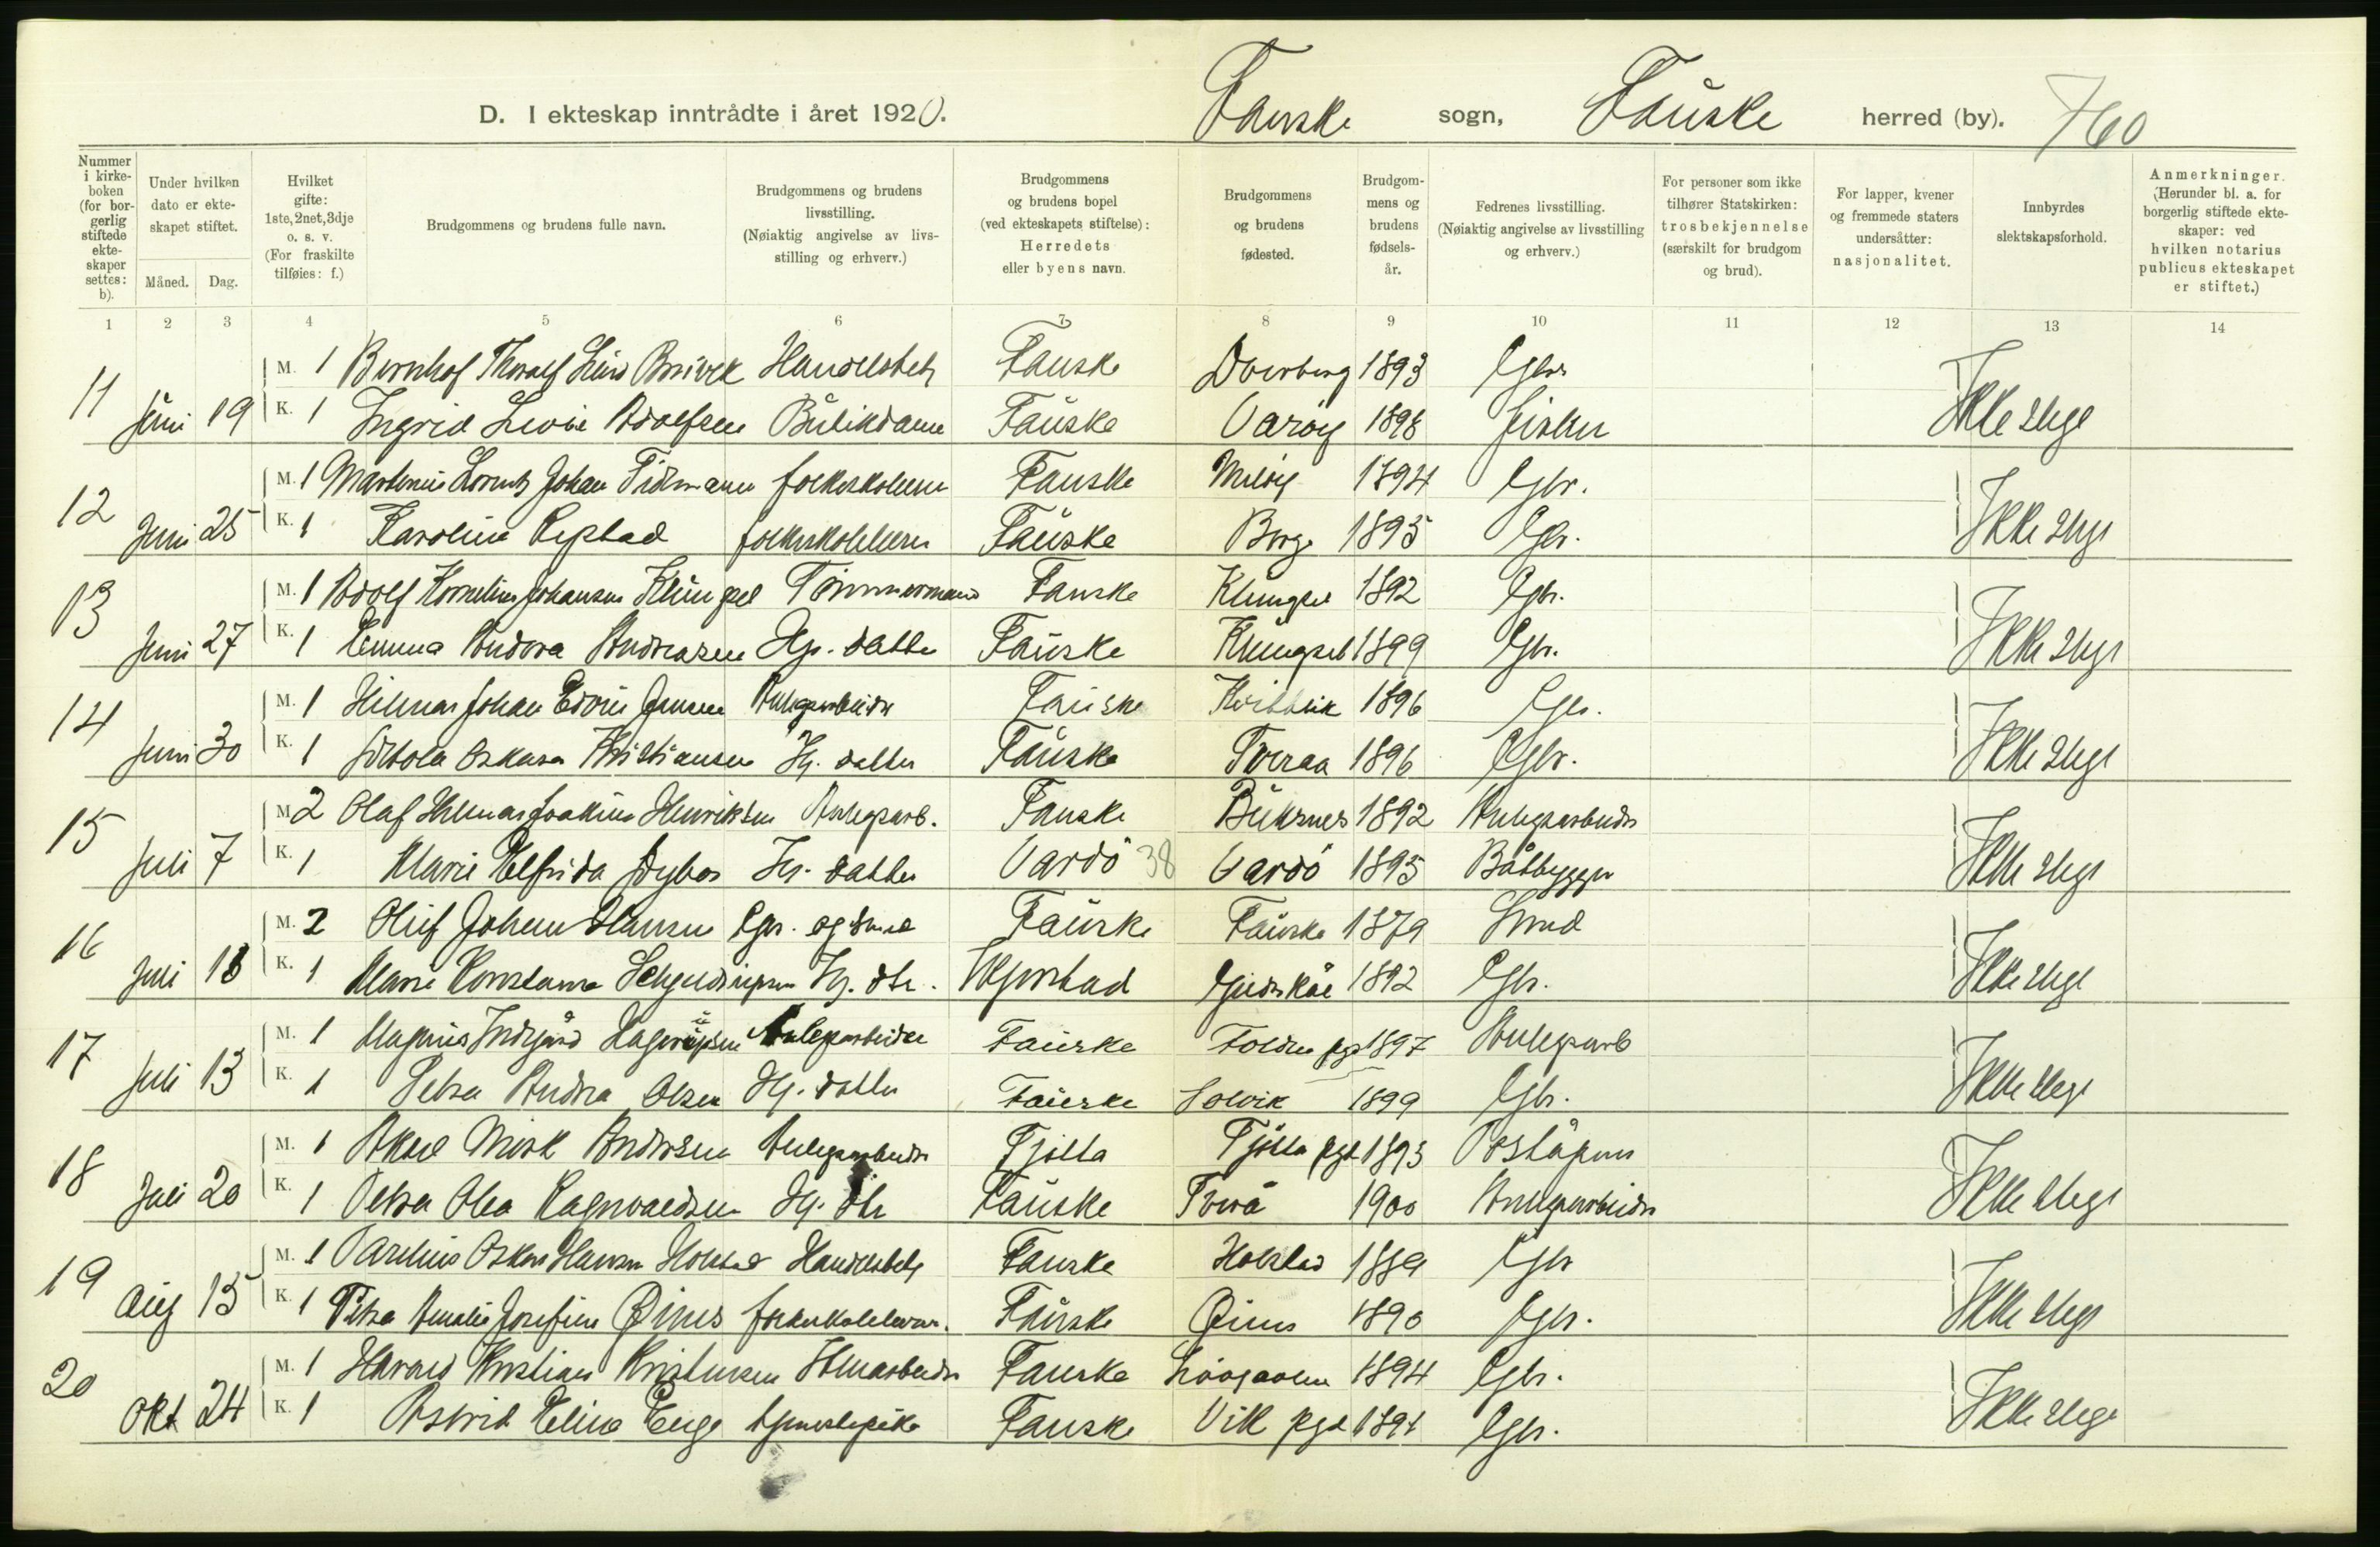 D. I ekteskap inntrådte i året 1920. Fauske sogn, Fauske herred (by). 760
Nummer i kirkeboken (for borgerlig stiftede ekteskaper settes: b).
Under hvilken dato er ekteskapet stiftet.
Måned. Dag.
Hvilket gifte: 1ste, 2net, 3dje o. s. v. (For fraskilte tilføies: f.)
Brudgommens og brudens fulle navn.
Brudgommens og brudens livsstilling. (Nøiaktig angivelse av livsstilling og erhverv.)
Brudgommens og brudens bopel (ved ekteskapets stiftelse): Herredets eller byens navn.
Brudgommens og brudens fødested.
Brudgommens og brudens fødselsår.
Fedrenes livsstilling. (Nøiaktig angivelse av livsstilling og erhverv.)
For personer som ikke tilhører Statskirken: trosbekjennelse (særskilt for brudgom og brud).
For lapper, kvener og fremmede staters undersåtter: nasjonalitet.
Innbyrdes slektskapsforhold.
Anmerkninger. (Herunder bl. a. for borgerlig stiftede ekteskaper: ved hvilken notarius publicus ekteskapet er stiftet.)
1 2 3 4 5 6 7 8 9 10 11 12 13 14
M. 1 Handelsbetj Fauske Dverberg 1893 Gbr
11 Juni 19 K. 1 Ingrid Adolfsen Butikdame Fauske Værøy 1898 Fisker Ikke slegt
M. 1 Johan Tidemann Fauske Meløy 1894 Gbr.
12 Juni 25 K. 1 Karoline Fauske Borge 1895 Gbr. Ikke slegt
M. 1 Adolf Kornelius Johansen Klungset Tømmermand Fauske Klungset 1892 Gbr.
13 Juni 27 K. 1 Emma Andora Andreasen Gbr. datter Fauske Klungset 1899 Gbr. Ikke slegt
M. 1 Hilmar Johan Edvin Jensen Anlegsarbeider Fauske Kvitblik 1896 Gbr.
14 Juni 30 K. 1 Oskara Kristiansen Hj. datter Fauske Tveraa 1896 Gbr. Ikke slegt
M. 2 Olaf Hilmar Joakim Henriksen Anlegsarb. Fauske Buksnes 1892 Anlegsarbeider
15 Juli 7 K. 1 Marie Elfrida Hj. datter Vardö 38 Vardö 1895 Båtbygger Ikke slegt
M. 2 Oluf Johan Hansen Gbr. og smed Fauske Fauske 1879 Smed
16 Juli K. 1 Marie Konstanse Hj. dtr. Skjerstad Gildeskål 1892 Gbr. Ikke slegt
M. 1 Magnus Indgård Anlegsarbeider Fauske Folden pgd 1897 Anlegsarb
17 Juli 13 K. 1 Petra Andrea Olsen Hj. datter Fauske Solvik 1899 Gbr. Ikke slegt
M. 1 Aksel Mörk Andersen Anlegsarbeider Tjötta Tjötta pgd 1893 Poståpner
18 Juli 20 K. 1 Petra Olea Ragnvaldsen Hj. dtr Fauske Tverå 1900 Anlegsarbeider Ikke slegt
M. 1 Oskar Hansen Holstad Handelsbetj Fauske Holstad 1889 Gbr
19 Aug 15 K. 1 Petra Amalie Josefine Øines Fauske Øines 1890 Gbr. Ikke slegt
M. 1 Harald Kristian Kristensen Fauske 1894 Gbr.
20 Okt 24 K. 1 Astrid Eline Enge tjenestepike Fauske Vik pgd 1891 Gbr. Ikke slegt